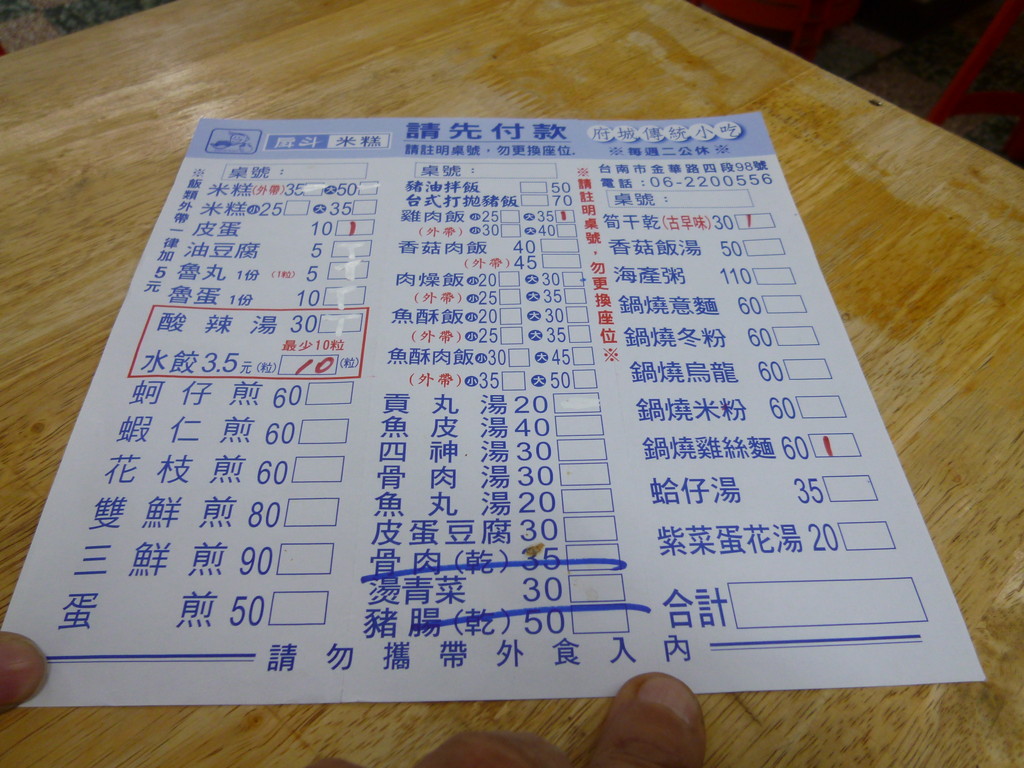 戽斗 米糕
請先付款
府城傳統小吃
請註明桌號,勿更換座位.
※每週二公休※
台南市金華路四段98號
電話:06-2200556
※飯類外帶一律加5元
桌號:
米糕(外帶)35 大50
米糕小25 大35
皮蛋 10 1
油豆腐 5
魯丸 1份 (1粒) 5
魯蛋 1份 10
酸辣湯 30
最少10粒
水餃3.5元(粒) 10 (粒)
蚵仔煎 60
蝦仁煎 60
花枝煎 60
雙鮮煎 80
三鮮煎 90
蛋煎 50
桌號:
豬油拌飯 50
台式打拋豬飯 70
雞肉飯 小25 大35 1
(外帶) 小30 大40
香菇肉飯 40
(外帶) 45
肉燥飯 小20 大30
(外帶) 小25 大35
魚酥飯 小20 大30
(外帶) 小25 大35
魚酥肉飯 小30 大45
(外帶) 小35 大50
貢丸湯 20
魚皮湯 40
四神湯 30
骨肉湯 30
魚丸湯 20
皮蛋豆腐 30
骨肉(乾) 35
燙青菜 30
豬腸(乾) 50
※請註明桌號,勿更換座位※
桌號:
筍干乾(古早味) 30 1
香菇飯湯 50
海產粥 110
鍋燒意麵 60
鍋燒冬粉 60
鍋燒烏龍 60
鍋燒米粉 60
鍋燒雞絲麵 60 1
蛤仔湯 35
紫菜蛋花湯 20
合計
請勿攜帶外食入內